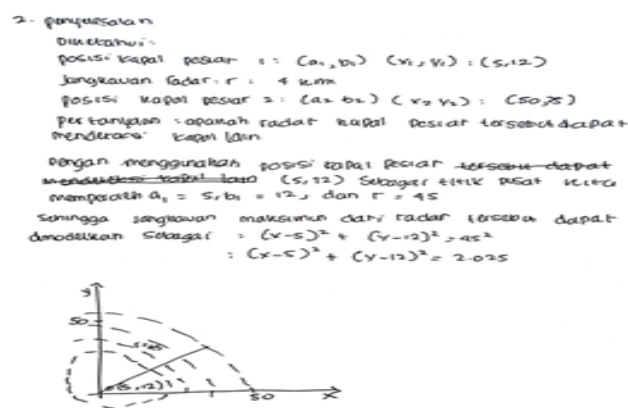 2. penyelesaian
Diketahui:
posisi kapal pesiar 1 : (a₁, b₁) (x₁, y₁) : (5,12)
Jangkauan radar. r :
posisi kapal pesiar 2 : (a₂ b₂) (x₂ y₂) :
pertanyaan : apakah radar kapal pesiar tersebut dapat
menderaksi kapal lain
Dengan menggunakan posisi kapal pesiar tersebut dapat
(5,12) sebagai titik pusat kita
memperoleh a₁ = 5, b₁ = 12, dan r = 45
Sehingga jangkauan maksimun dari radar tersebut dapat
dimodelkan sebagai : (x-5)² + (y-12)² = 45²
: (x-5)² + (y-12)² = 2.025
y
50
(5,12)
50
x